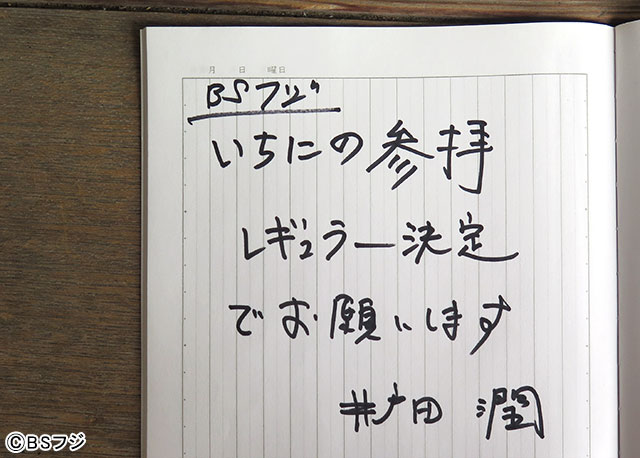 月 日 曜日
BSフジ
いちにの参拝
レギュラー決定
でお願いします
井戸田 潤
©BSフジ